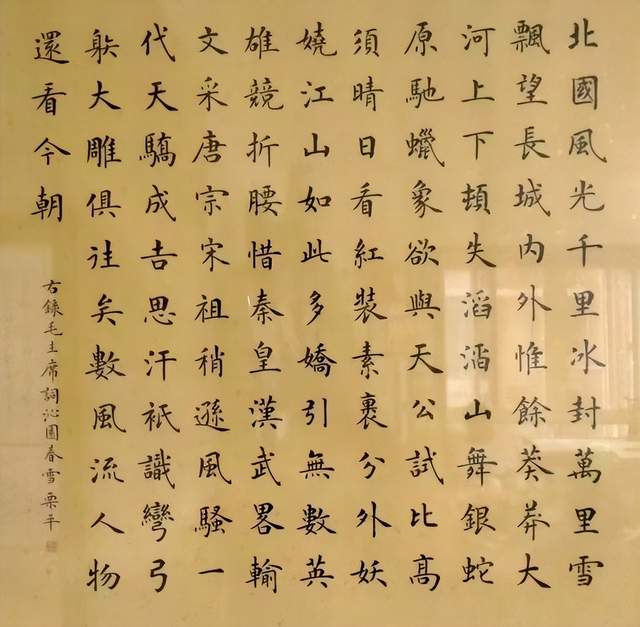 北國風光千里冰封萬里雪
飄望長城内外惟餘莽莽大
河上下頓失滔滔山舞銀蛇
原馳蠟象欲與天公試比高
須晴日看紅裝素裹分外妖
嬈江山如此多嬌引無數英
雄競折腰惜秦皇漢武畧輸
文采唐宗宋祖稍遜風騷一
代天驕成吉思汗衹識彎弓
䠶大雕俱往矣數風流人物
還看今朝
右錄毛主席詞沁園春雪 栗平